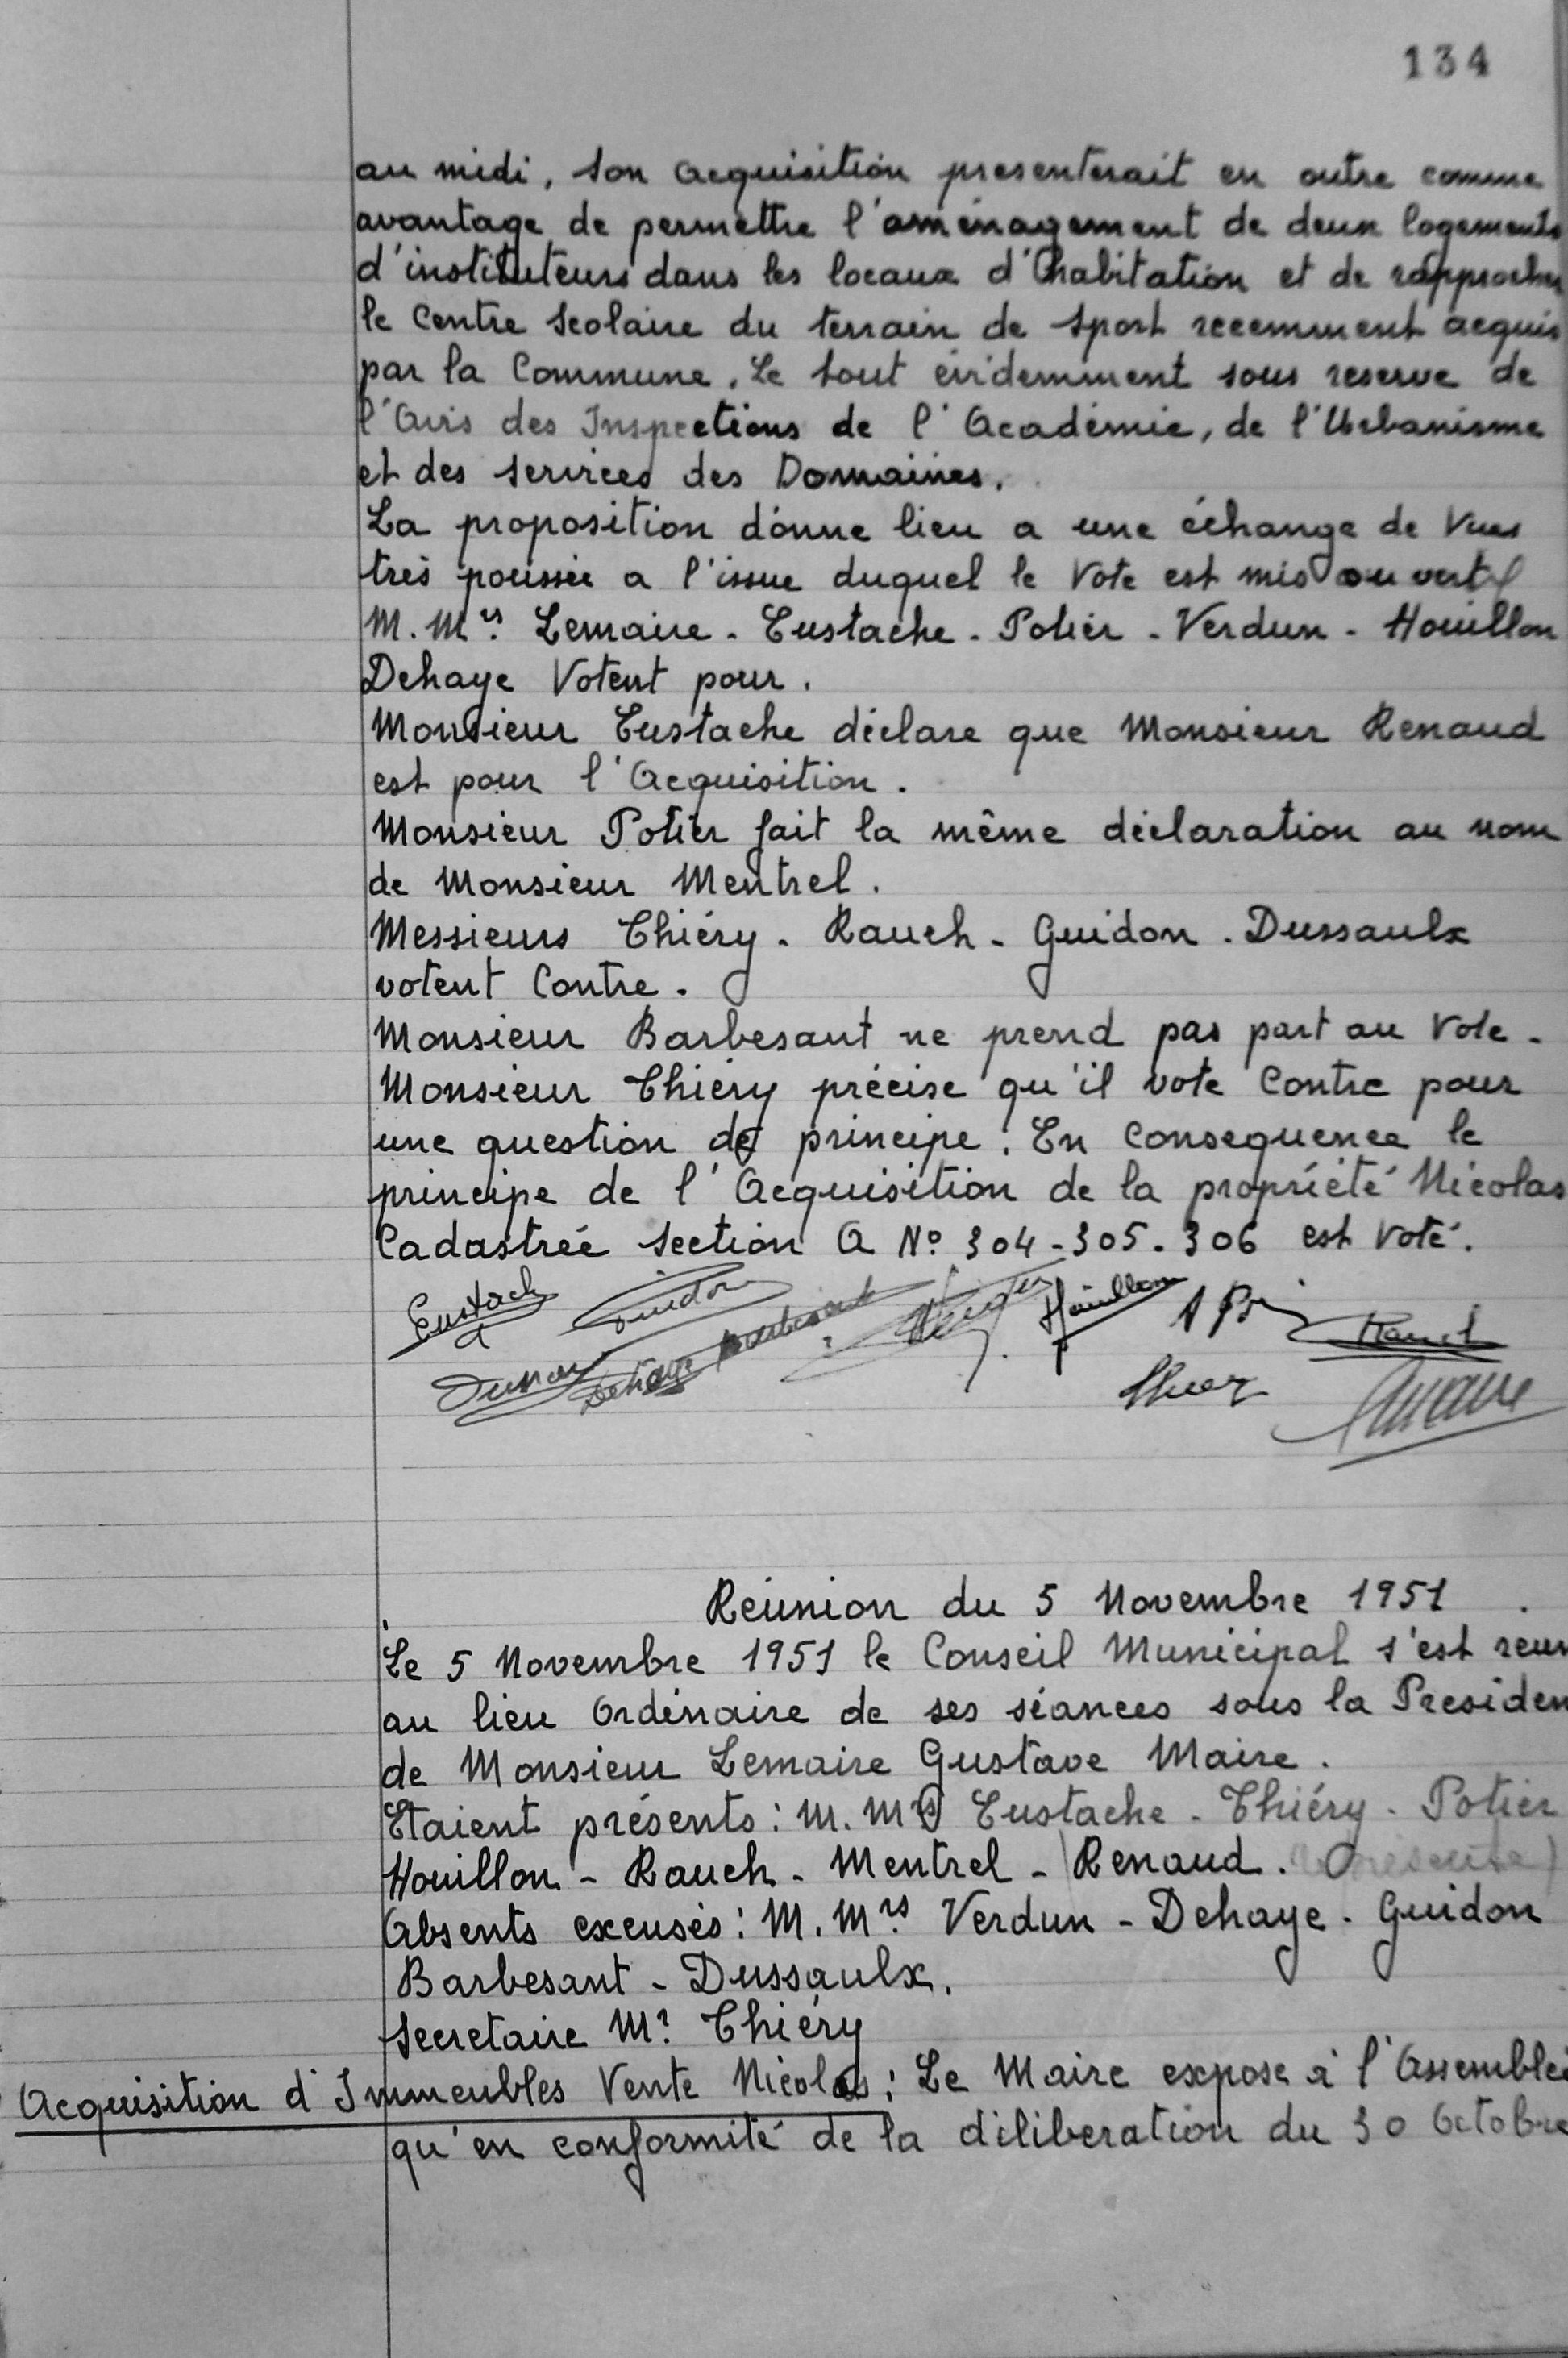 134
au midi, son acquisition presenterait en outre comme
avantage de permettre l'aménagement de deux logements
d'instituteurs dans les locaux d'habitation et de rapprocher
le Centre Scolaire du terrain de sport recemment acquis
par la Commune. Le tout évidemment sous reserve de
l'Avis des Inspections de l'Académie, de l'Urbanisme
et des services des Domaines.
La proposition donne lieu a une échange de Vues
très poussée a l'issue duquel le Vote est mis ouvert
M.Mrs. Lemaire - Eustache - Potier - Verdun - Houillon
Dehaye Votent pour.
Monsieur Eustache déclare que Monsieur Renaud
est pour l'Acquisition.
Monsieur Potier fait la même déclaration au nom
de Monsieur Mentrel.
Messieurs Thiéry - Rauch - Guidon - Dussaulx
votent Contre.
Monsieur Barbesant ne prend pas part au Vote.
Monsieur Thiéry précise qu'il vote Contre pour
une question de principe. En Consequence le
principe de l'Acquisition de la propriété Nicolas
Cadastrée section A No 304-305-306 est Voté.
Eustache Guidon Barbesant Houillon Rauch
Dussaulx Dehaye Thiery Lemaire
Réunion du 5 Novembre 1951.
Le 5 Novembre 1951 le Conseil Municipal s'est reun
au lieu Ordinaire de ses séances sous la Presiden
de Monsieur Lemaire Gustave Maire.
Etaient présents : M.Mrs Eustache - Thiéry - Potier
Houillon - Rauch - Mentrel - Renaud.
Absents excusés : M.Mrs. Verdun - Dehaye - Guidon
Barbesant - Dussaulx.
Secretaire Mr. Thiéry
Acquisition d'Immeubles Vente Nicolas : Le Maire expose à l'Assemblée
qu'en conformité de la diliberation du 30 Octobre